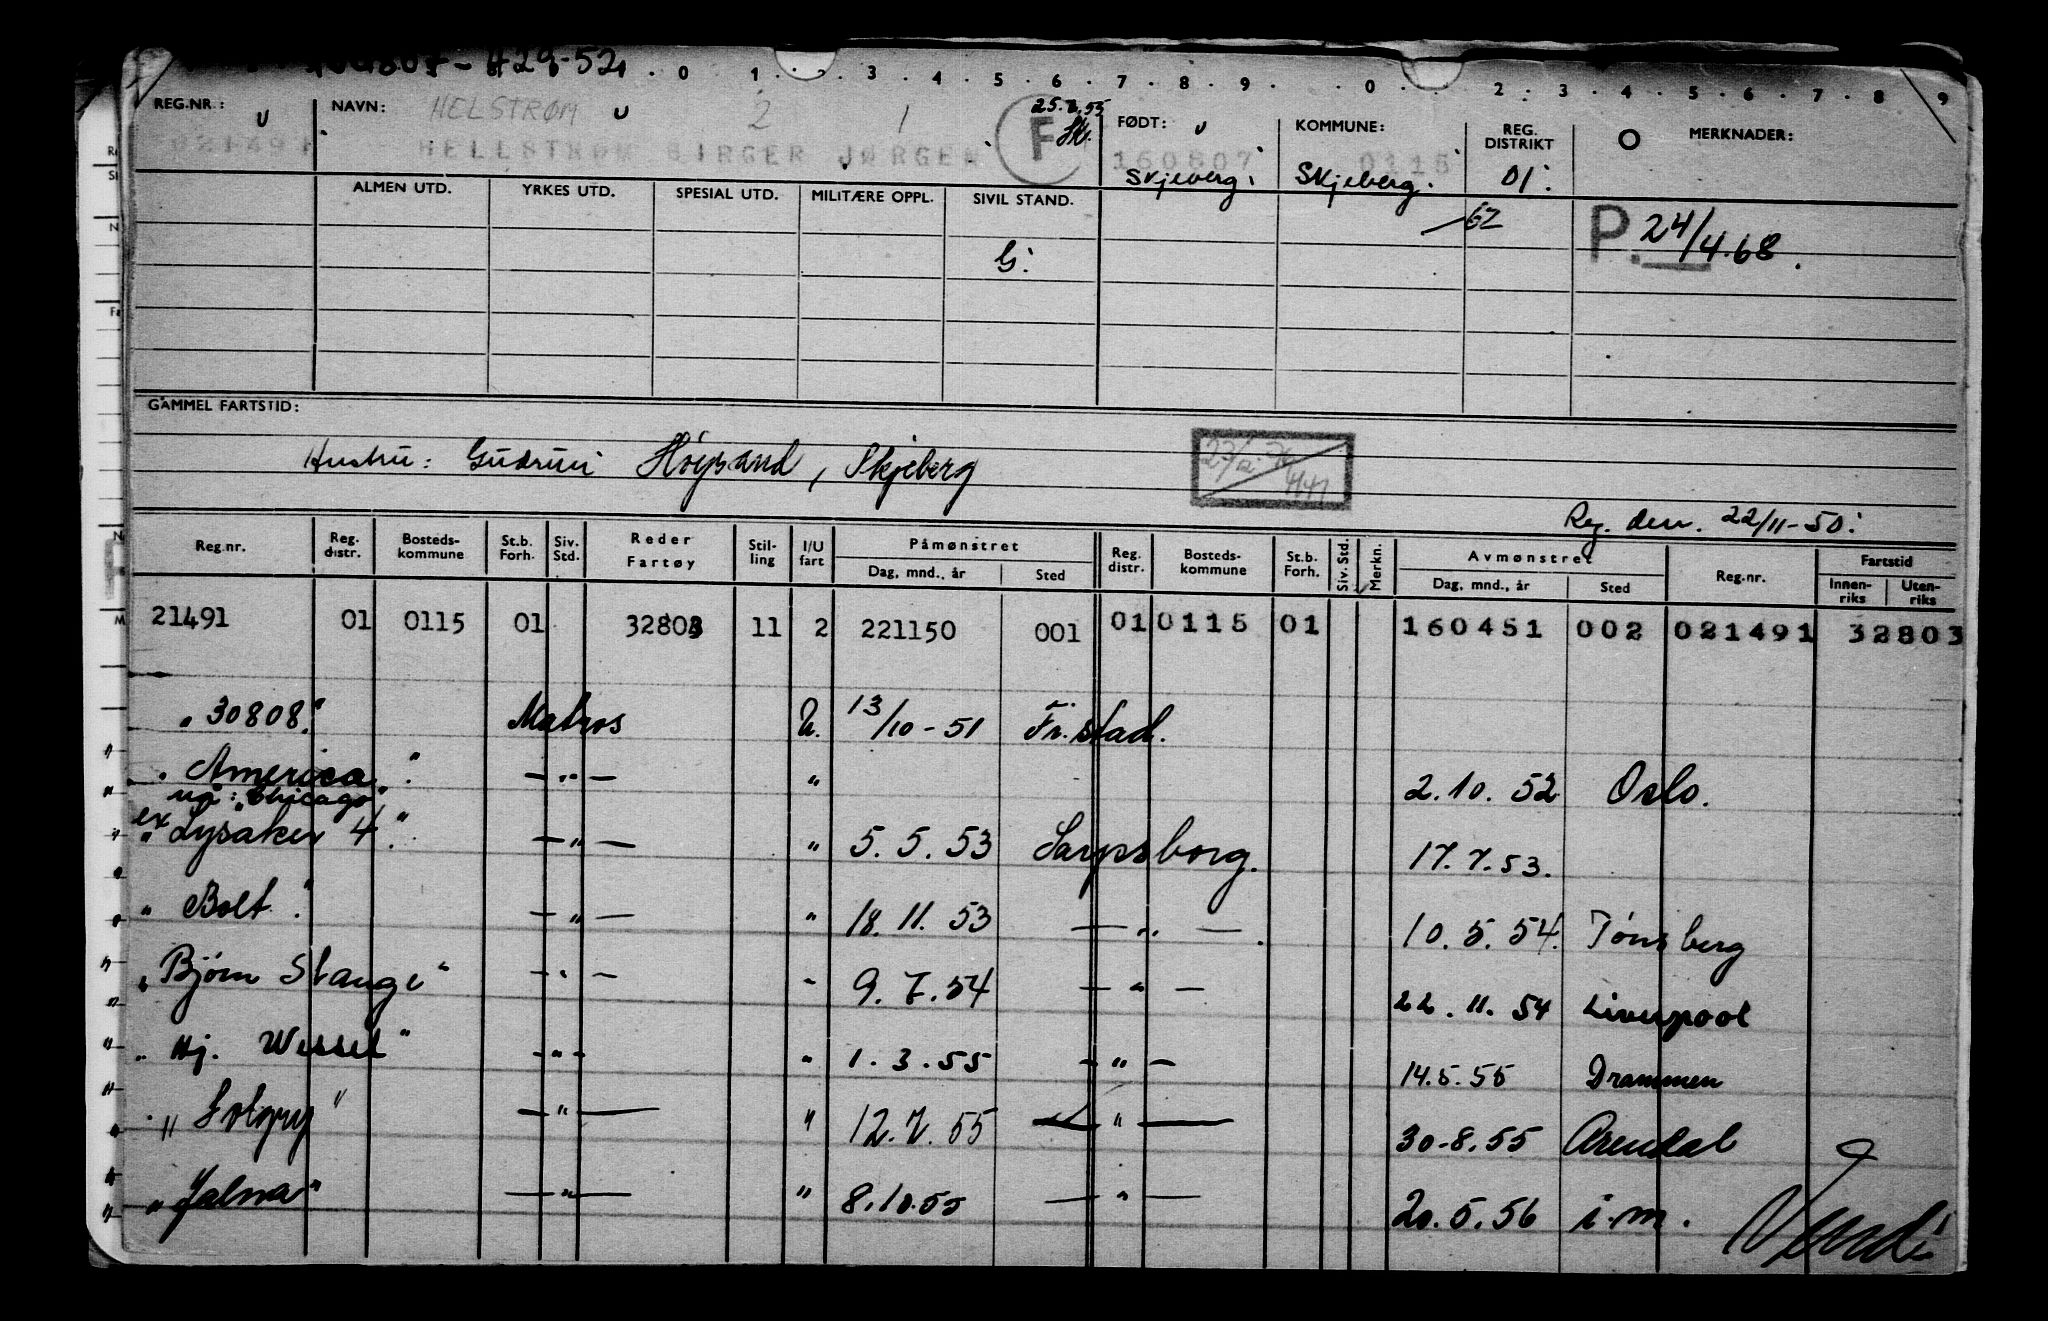 160807-42952
0 1 2 3 4 5 6 7 8 9 0 2 3 4 5 6 7 8 9
REG.NR.: NAVN: HELSTRØM 2 1 25.2.55 FØDT: KOMMUNE: REG. DISTRIKT O MERKNADER:
021491 HELLSTRØM BIRGER JØRGEN F Sk. 160807 0115
Skjeberg. Skjeberg. 01.
ALMEN UTD. YRKES UTD. SPESIAL UTD. MILITÆRE OPPL. SIVIL STAND.
62 P. 24/4.68.
G.
GAMMEL FARTSTID:
Hustru: Gudrun Høysand, Skjeberg
Reg. den. 22/11-50.
Reg.nr. Reg. distr. Bosteds-kommune St.b. Forh. Siv. Std. Reder Fartøy Stil-ling I/U fart Påmønstret Reg. distr. Bosteds-kommune St.b. Forh. Siv. Std. Merkn. Avmønstret Reg.nr. Fartstid
Dag, mnd., år Sted Dag, mnd., år Sted Innen-riks Uten-riks
21491 01 0115 01 32803 11 2 221150 001 01 0115 01 160451 002 021491 32803
"30808." Matros U. 13/10-51 Fr.stad.
"America". — " — " 2.10.52 Oslo.
nå: "Chicago"
ex "Lysaker 4". — " — " 5.5.53 Sarpsborg. 17.7.53.
"Bolt". — " — " 18.11.53 — " —. 10.5.54. Tønsberg
"Bjørn Stange" — " — " 9.7.54 — " — 22.11.54 Liverpool
"Hj. Wessel" — " — " 1.3.55 — " — 14.5.55 Drammen
"Solgry" — " — " 12.7.55 — " — 30.8.55 Arendal
"Jalna" — " — " 8.10.55 — " — 20.5.56 i.m.
Vend!